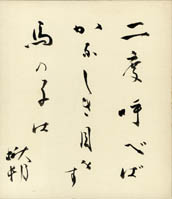 二度呼べば
かなしき目をす
馬の子は